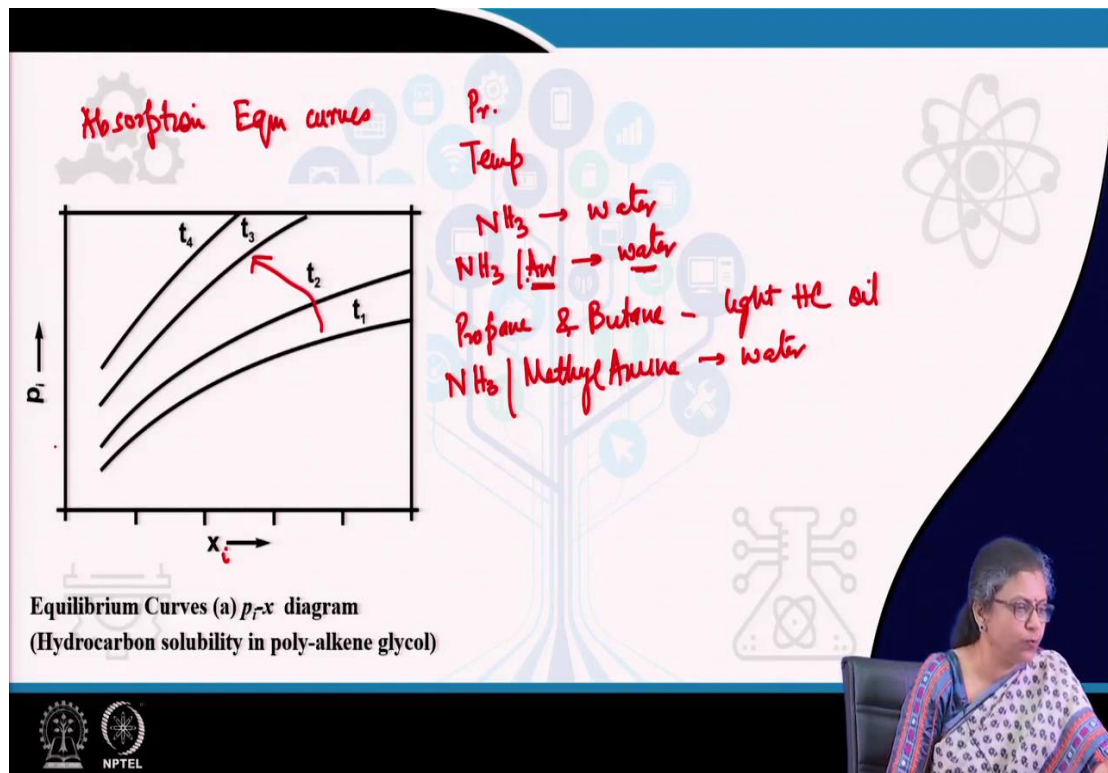 Absorption Eqm curves
Pr.
Temp
NH3 → water
NH3 | Air → water
Propane & Butane - light HC oil
NH3 | Methyl Amine → water
t4
t3
t2
t1
pi
xi
Equilibrium Curves (a) pi-x diagram
(Hydrocarbon solubility in poly-alkene glycol)
NPTEL